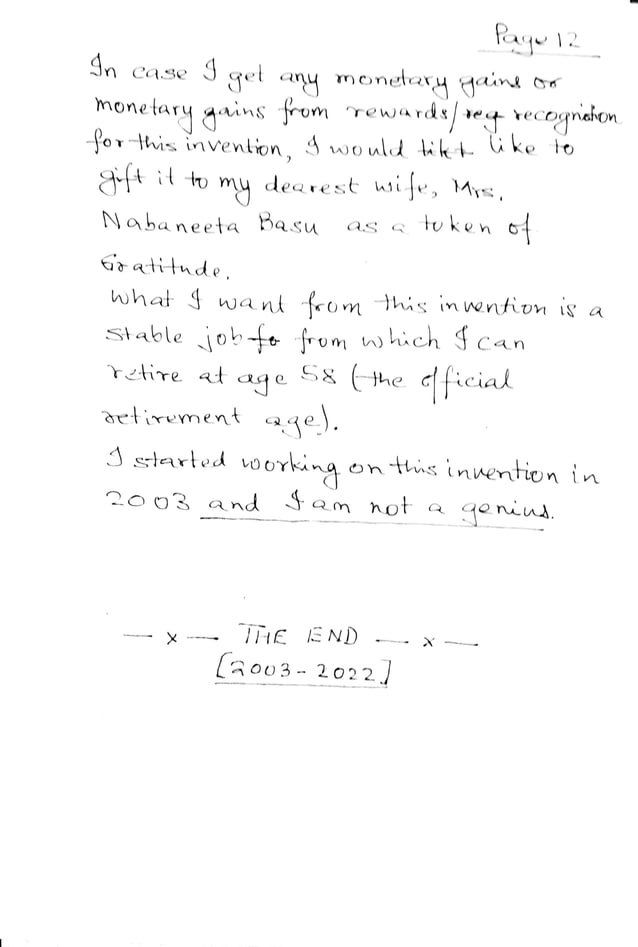 Page 12
In case I get any monetary gains or
monetary gains from rewards/ reg recognition
for this invention, I would likt like to
gift it to my dearest wife, Mrs.
Nabaneeta Basu as a token of
Gratitude.
What I want from this invention is a
stable job fo from which I can
retire at age 58 (the official
retirement age).
I started working on this invention in
2003 and I am not a genius.
— x — THE END — x —
[2003-2022]